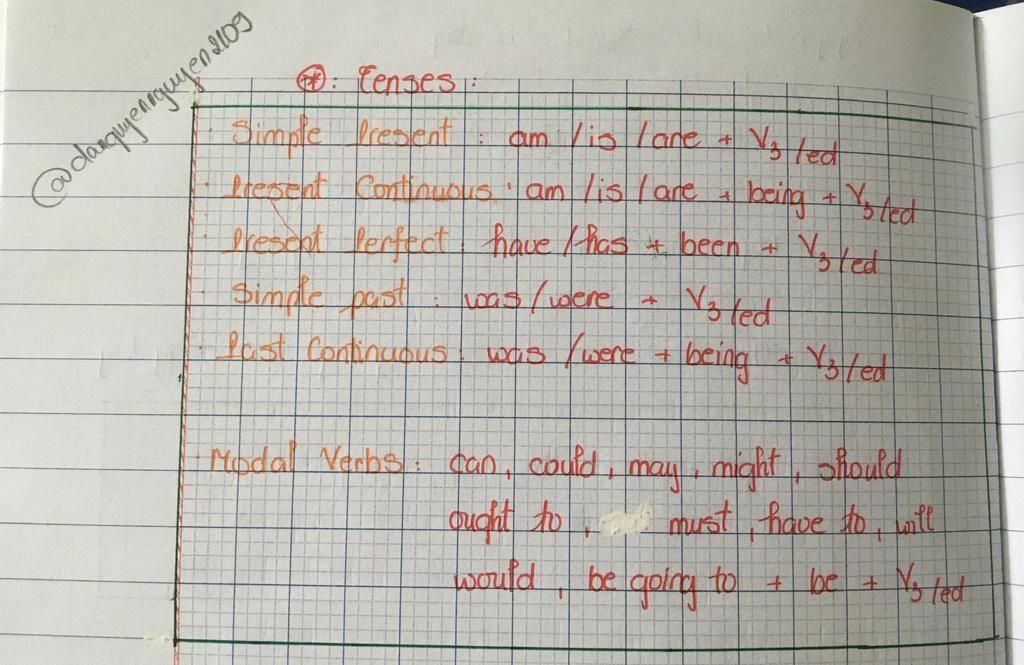 @dangquyennguyen2109
⊛: Tenses:
· Simple Present: am / is / are + V3/ed
· Present Continuous: am / is / are + being + V3/ed
· Present Perfect: have / has + been + V3/ed
· Simple past: was / were + V3/ed
· Past Continuous: was / were + being + V3/ed
· Modal Verbs: can, could, may, might, should
ought to, must, have to, will
would, be going to + be + V3/ed